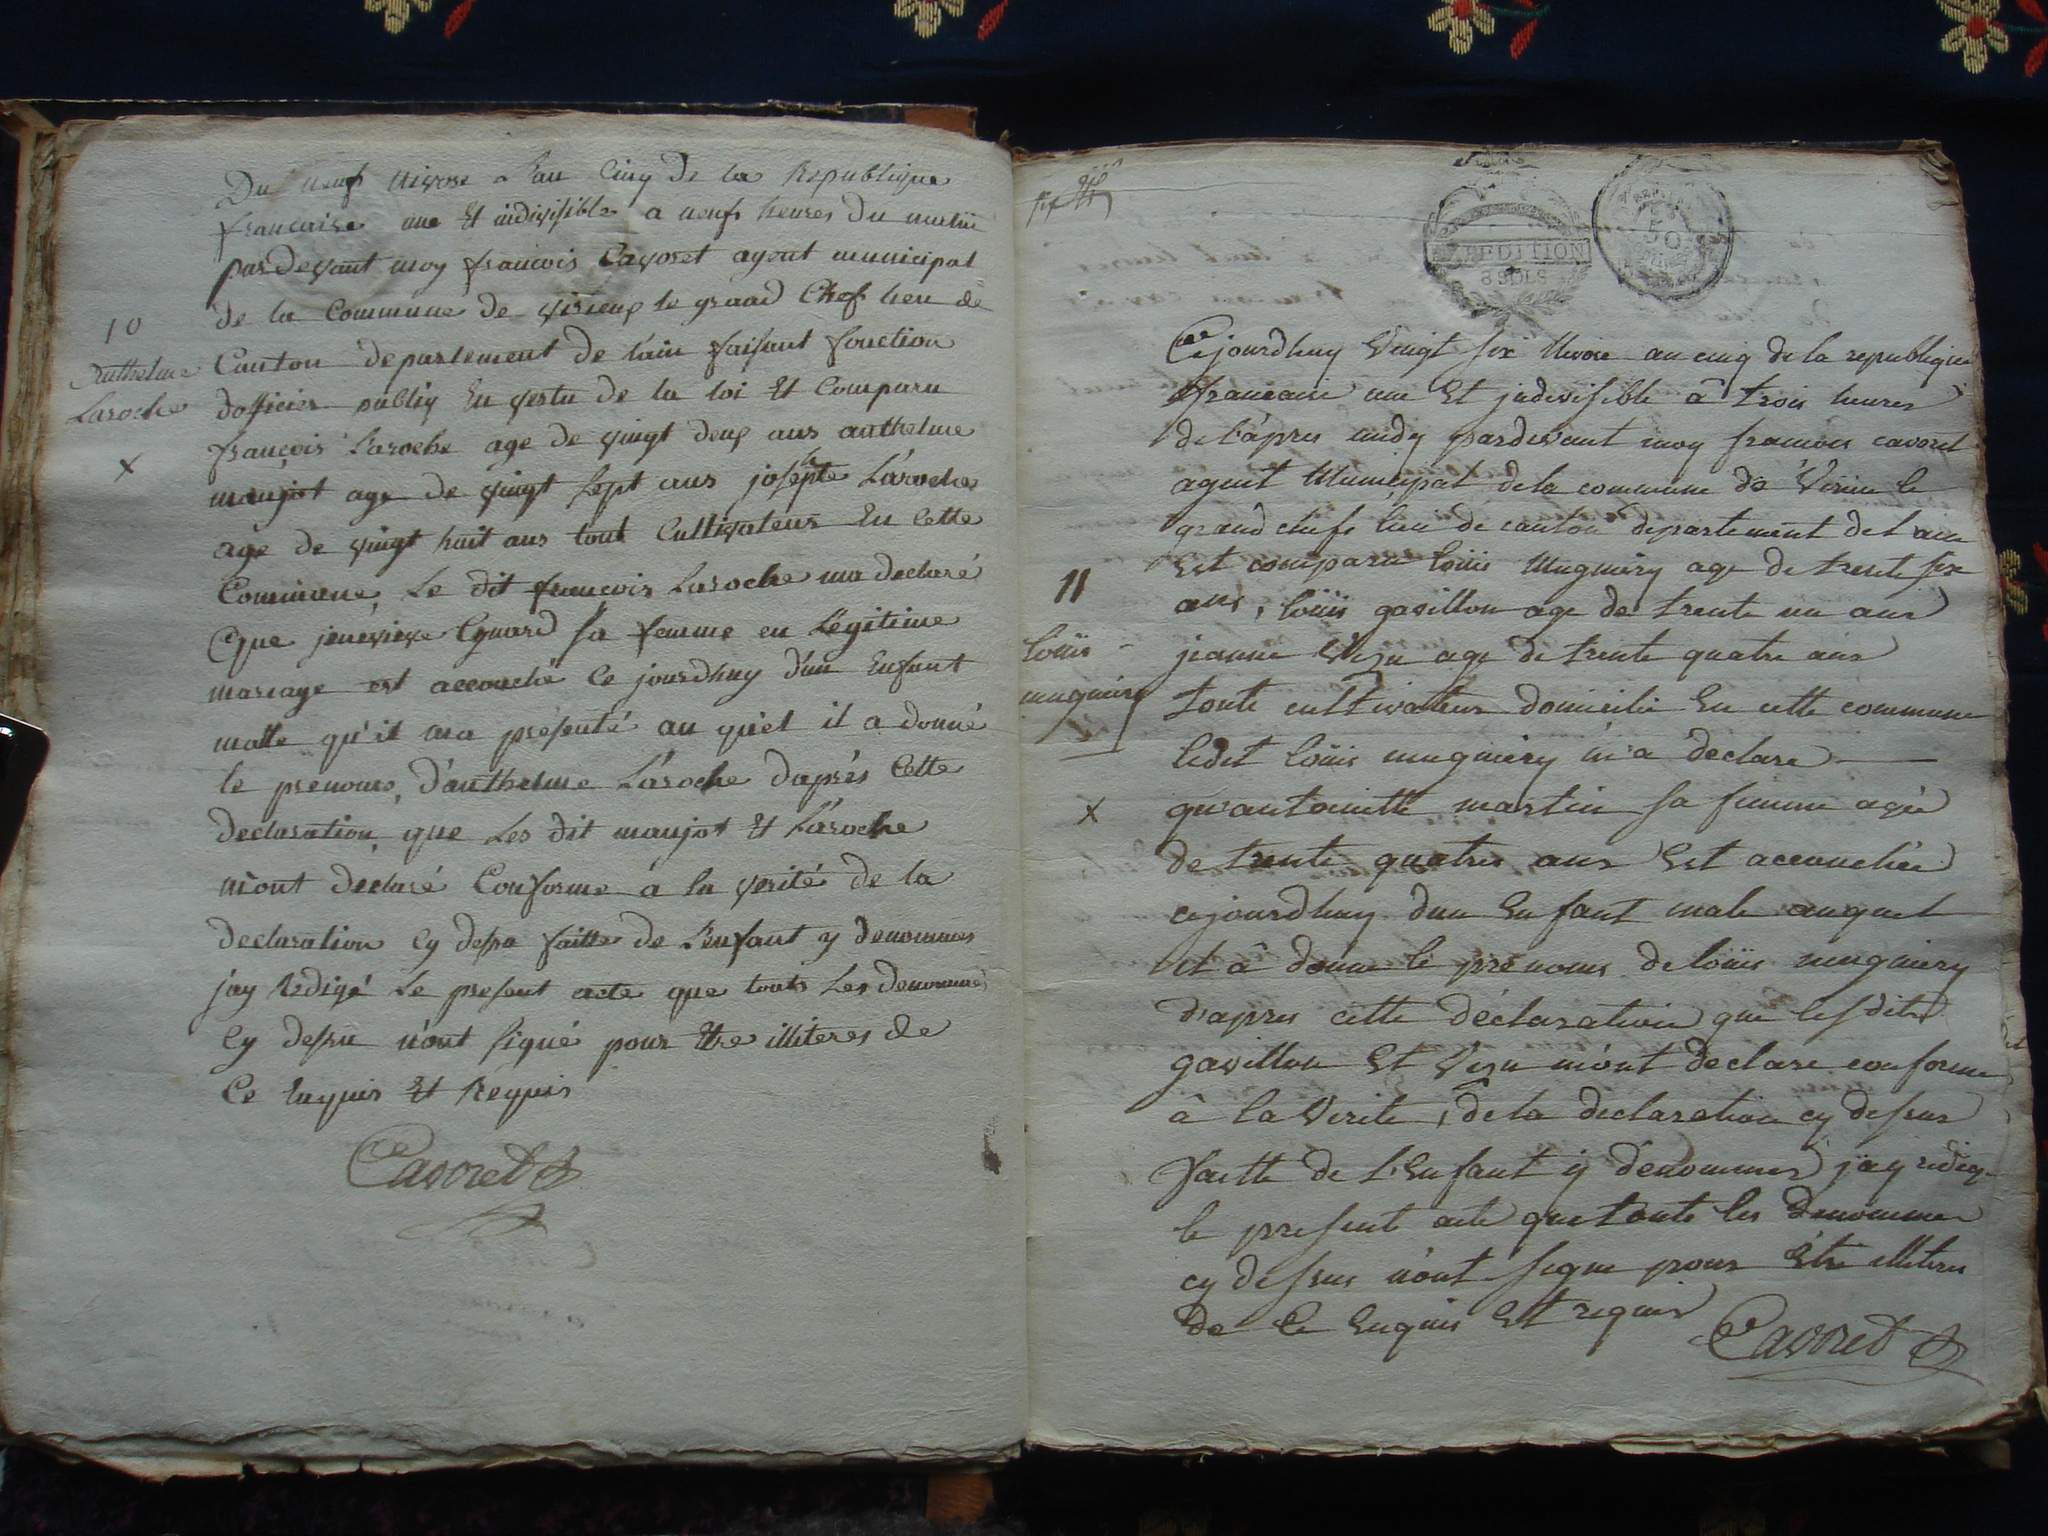 Du neuf nivose l'an cinq de la Republique
francaise une Et indivisible a neufs heures du matin
pardevant moy francois Cavoret agent municipal
de la Commune de virieux le grand Chef lieu de
Canton departement de l'ain faisant fonction
dofficier publiq En vertu de la loi Et Comparu
françois Laroche age de vingt deux ans anthelme
maujot age de vingt sept ans josepte Laroche
age de vingt huit ans tout Cultivateur En Cette
Commune, Le dit francois Laroche ma declaré
Que jenevieve sa femme en Légitime
mariage est accouché Ce jourdhuy d'un Enfant
malle qu'il ma présenté au quel il a donné
le prenoms, d'anthelme Laroche daprés Cette
declaration, que Les dit maujot Et Laroche
m'ont declaré Conforme a la verité de la
declaration Cy desu faitte de L'enfant y denommes
j'ay Redigé Le present acte que touts Les denommé
Cy dessu n'ont signé pour Etre illiteres de
Ce Enquis Et Requis
Cavoret
10
Anthelme
Laroche
x
EXPEDITION
8 SOLS
50
Cejourdhuy Vingt six Nivose an cinq de la republique
francaise une Et indivisible â trois heures
de l'apres midy pardevant moy francois cavoret
agent Municipat de la commune de Virieu le
grand chefs lieu de canton departement de l ain
Est comparu loüis Mugniery age de trente six
ans, loüis gavillon age de trente un ans
jeanne age de trente quatre ans
toute cultivateur domicilié En cette commune
ledit loüis mugniery m'a déclare
qu'antoinette martin sa femme agée
de trente quatres ans Est accouchée
cejourdhuy dun Enfant male auquel
il â donne le prénoms de loüis mugniery
d'apres cette déclaration que lesdits
gavillon Et m'ont declare conforme
â la Verite, de la declaration cy dessus
faitte de l'Enfant y dénommés j'ay redige
le present acte que touts les denommer
cy dessus n'ont signe pour Etre illiteres
de Ce Enquis Et requis
Cavoret
11
loüis
mugniery
x